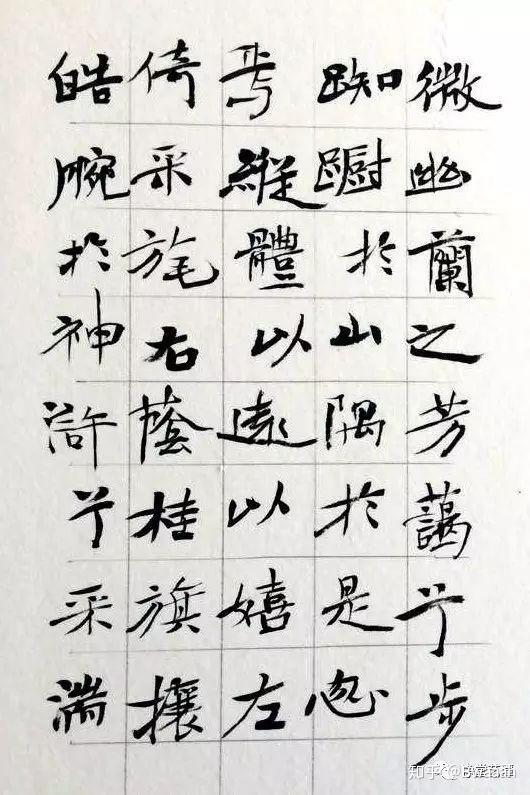 微幽蘭之芳藹兮步
踟躕於山隅於是忽
焉縱體以遨以嬉左
倚采旄右蔭桂旗攘
皓腕於神滸兮采湍
知乎